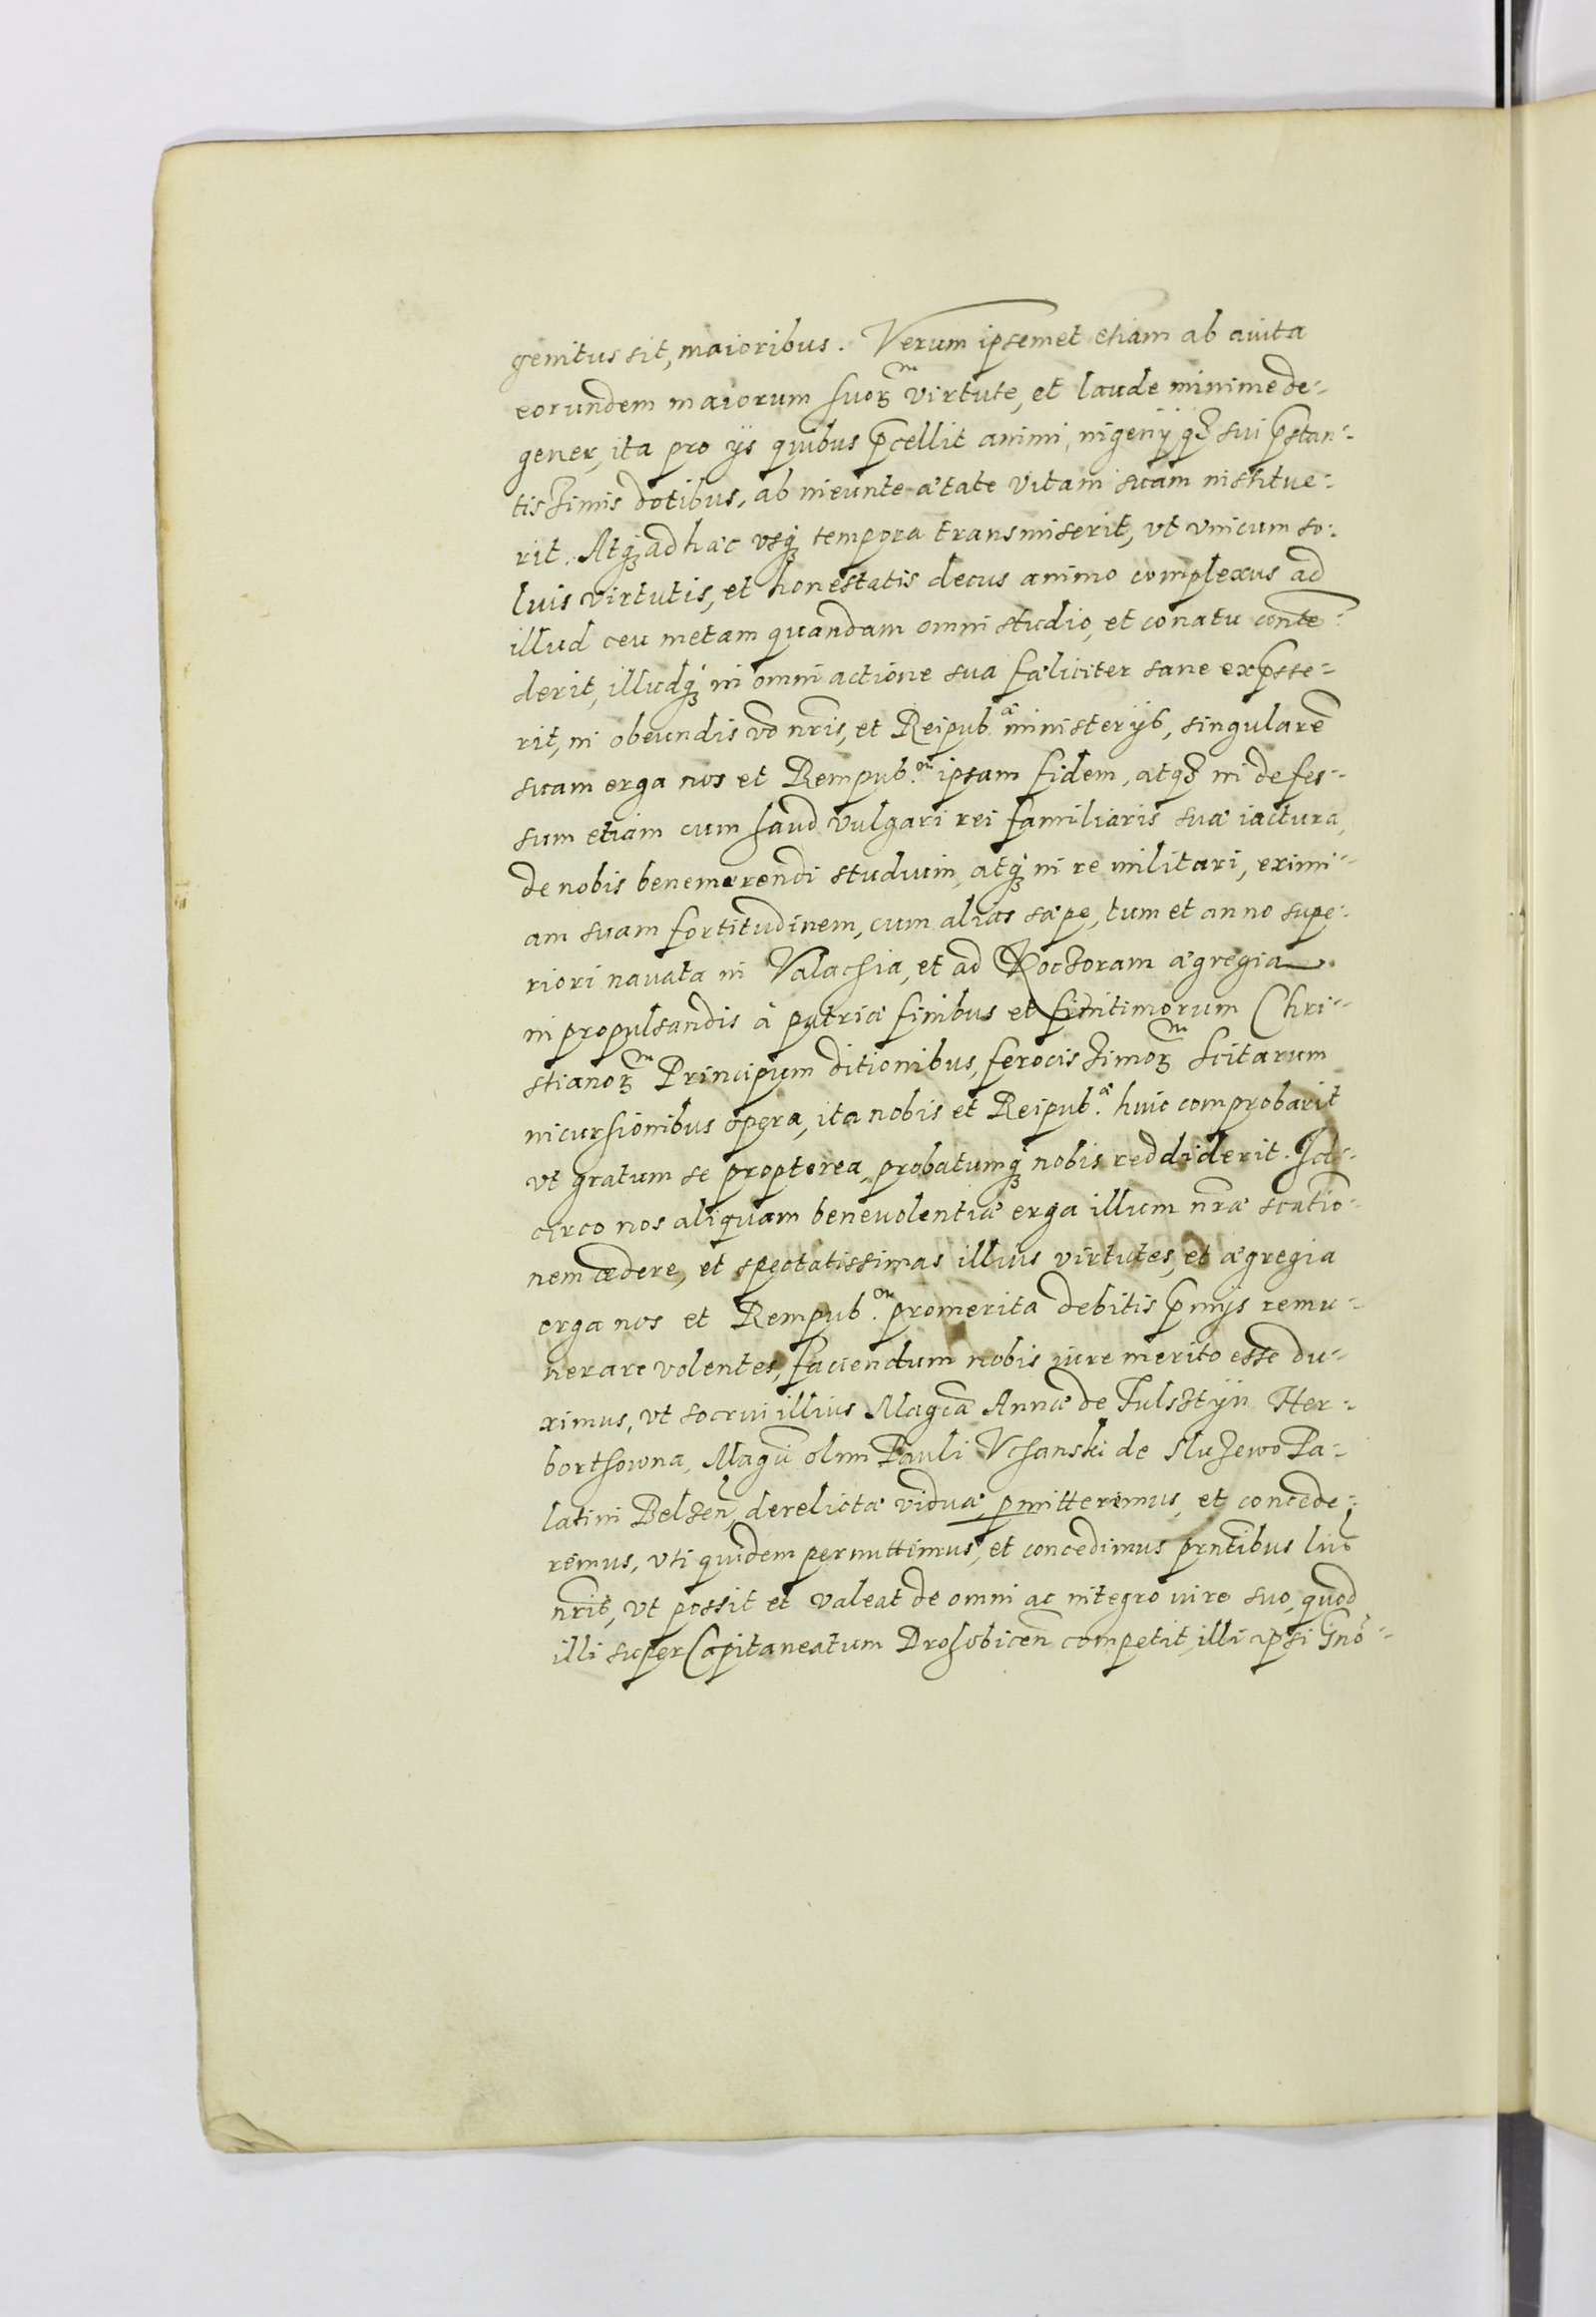 genitus sit, maioribus. Verum ipsemet etiam ab auita
eorundem maiorum suoꝝ virtute, et laude minime de-
gener, ita pro ijs quibus p̃cellit animi, ingenijq́ꝫ sui p̃stan-
tissimis dotibus, ab ineunte ætate vitam suam institue-
rit. Atq́ꝫ ad hæc vsq́ꝫ tempora transmiserit, vt vnicum so-
lius virtutis, et honestatis decus animo complexus ad
illud ceu metam quandam omni studio, et conatu conte-
derit, illudq́ꝫ in omni actione sua fæliciter sane exp̃sse-
rit, in obeundis vō nr̃is, et Reipub.æ ministerijs, singularẽ
suam erga nos et Rempub.em ipsam fidem, atq́ꝫ indefes-
sum etiam cum haud vulgari rei familiaris suæ iactura,
de nobis benemerendi studium, atq́ꝫ in re militari, eximi-
am suam fortitudinem, cum alias sæpe, tum et anno supe-
riori nauata in Valachia, et ad Roczoram ægregia
in propulsandis à patriæ finibus et finitimorum Chri-
stianoꝝ Principum ditionibus, ferocissimoꝝ Scitarum
incursionibus opera, ita nobis et Reipub.æ huic comprobarit
vt gratum se propterea, probatumq́ꝫ nobis reddiderit. Id-
circo nos aliquam beneuolentiæ erga illum nr̃æ scatio-
nem ædere, et spectatissimas illius virtutes, et ægregia
erga nos et Rempub.em promerita debitis p̃mijs remu-
nerare volentes, faciendum nobis iure merito esse du-
ximus, vt socrui illius Magcæ Annæ de Fulsztijn Her-
borthowna, Magci olim Pauli Vchanski de Sluzewo Pa-
latini Belzeñ, derelictæ viduæ, pmitteremus, et concede-
remus, vti quidem permittimus, et concedimus prñtibus liĩs
nr̃it, vt possit et valeat de omni ac integro iure suo, quod
illi super Capitaneatum Drohobiceñ competit, illi ipsi Gnõ-